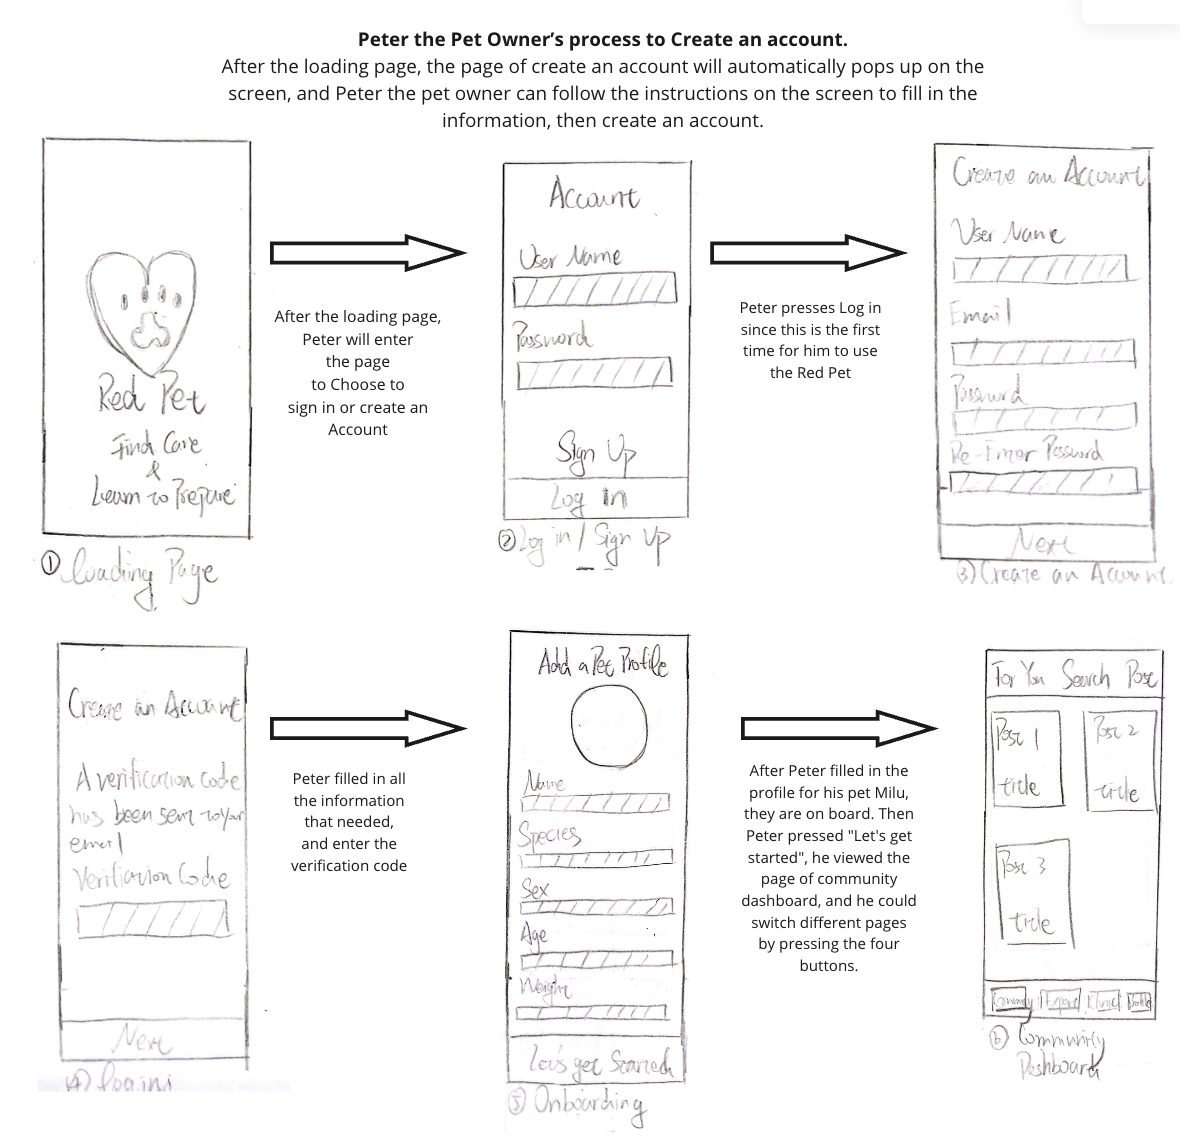 Peter the Pet Owner’s process to Create an account.
After the loading page, the page of create an account will automatically pops up on the
screen, and Peter the pet owner can follow the instructions on the screen to fill in the
information, then create an account.
Red Pet
Find Care
&
Learn to Prepare
① Loading Page
After the loading page,
Peter will enter
the page
to Choose to
sign in or create an
Account
Account
User Name
Password
Sign Up
Log in
② Log in / Sign Up
Peter presses Log in
since this is the first
time for him to use
the Red Pet
Create an Account
User Name
Email
Password
Re-Enter Password
Next
③ Create an Account
Create an Account
A verification code
has been sent to your
email
Verification Code
Next
④
Peter filled in all
the information
that needed,
and enter the
verification code
Add a Pet Profile
Name
Species
Sex
Age
Weight
Let's get Started
⑤ Onboarding
After Peter filled in the
profile for his pet Milu,
they are on board. Then
Peter pressed "Let's get
started", he viewed the
page of community
dashboard, and he could
switch different pages
by pressing the four
buttons.
For You Search Post
Post 1
title
Post 2
title
Post 3
title
Community Profile
⑥ Community
Dashboard